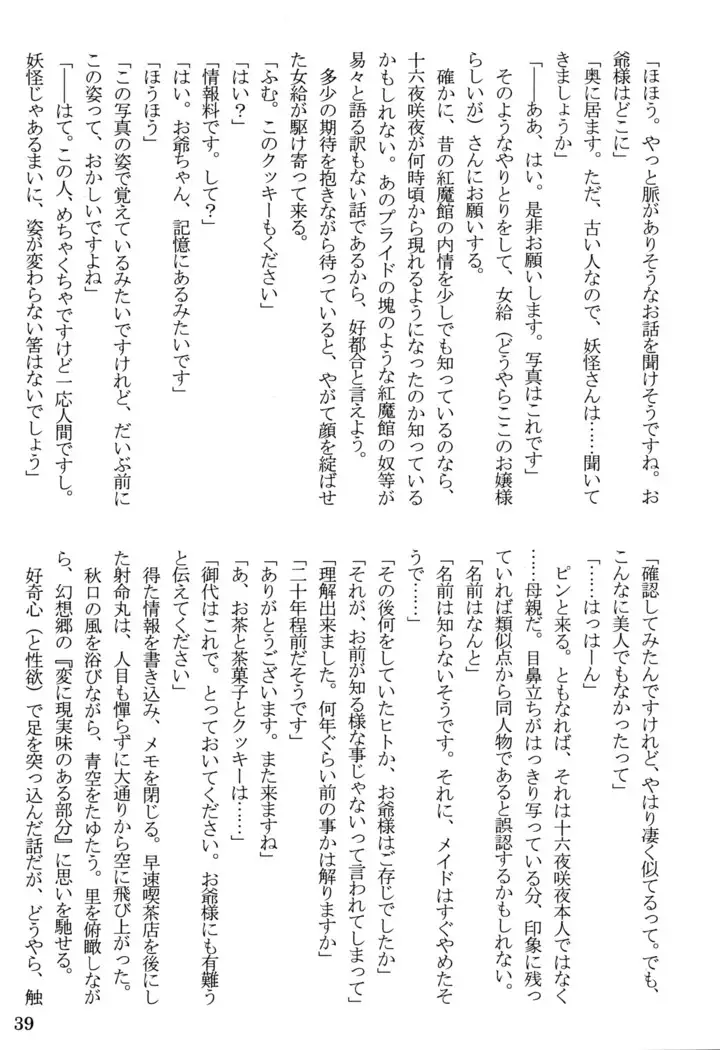 「ほほう。やっと脈がありそうなお話を聞けそうですね。お
爺様はどこに」
「奥に居ます。ただ、古い人なので、妖怪さんは……聞いて
きましょうか」
「――ああ、はい。是非お願いします。写真はこれです」
そのようなやりとりをして、女給（どうやらここのお嬢様
らしいが）さんにお願いする。
確かに、昔の紅魔館の内情を少しでも知っているのなら、
十六夜咲夜が何時頃から現れるようになったのか知っている
かもしれない。あのプライドの塊のような紅魔館の奴等が
易々と語る訳もない話であるから、好都合と言えよう。
多少の期待を抱きながら待っていると、やがて顔を綻ばせ
た女給が駆け寄って来る。
「ふむ。このクッキーもください」
「はい？」
「情報料です。して？」
「はい。お爺ちゃん、記憶にあるみたいです」
「ほうほう」
「この写真の姿で覚えているみたいですけれど、だいぶ前に
この姿って、おかしいですよね」
「――はて。この人、めちゃくちゃですけど一応人間ですし。
妖怪じゃあるまいに、姿が変わらない筈はないでしょう」
「確認してみたんですけれど、やはり凄く似てるって。でも、
こんなに美人でもなかったって」
「……はっはーん」
ピンと来る。ともなれば、それは十六夜咲夜本人ではなく
……母親だ。目鼻立ちがはっきり写っている分、印象に残っ
ていれば類似点から同人物であると誤認するかもしれない。
「名前はなんと」
「名前は知らないそうです。それに、メイドはすぐやめたそ
うで……」
「その後何をしていたヒトか、お爺様はご存じでしたか」
「それが、お前が知る様な事じゃないって言われてしまって」
「理解出来ました。何年ぐらい前の事かは解りますか」
「二十年程前だそうです」
「ありがとうございます。また来ますね」
「あ、お茶と茶菓子とクッキーは……」
「御代はこれで。とっておいてください。お爺様にも有難う
と伝えてください」
得た情報を書き込み、メモを閉じる。早速喫茶店を後にし
た射命丸は、人目も憚らずに大通りから空に飛び上がった。
秋口の風を浴びながら、青空をたゆたう。里を俯瞰しなが
ら、幻想郷の『変に現実味のある部分』に思いを馳せる。
好奇心（と性欲）で足を突っ込んだ話だが、どうやら、触
39